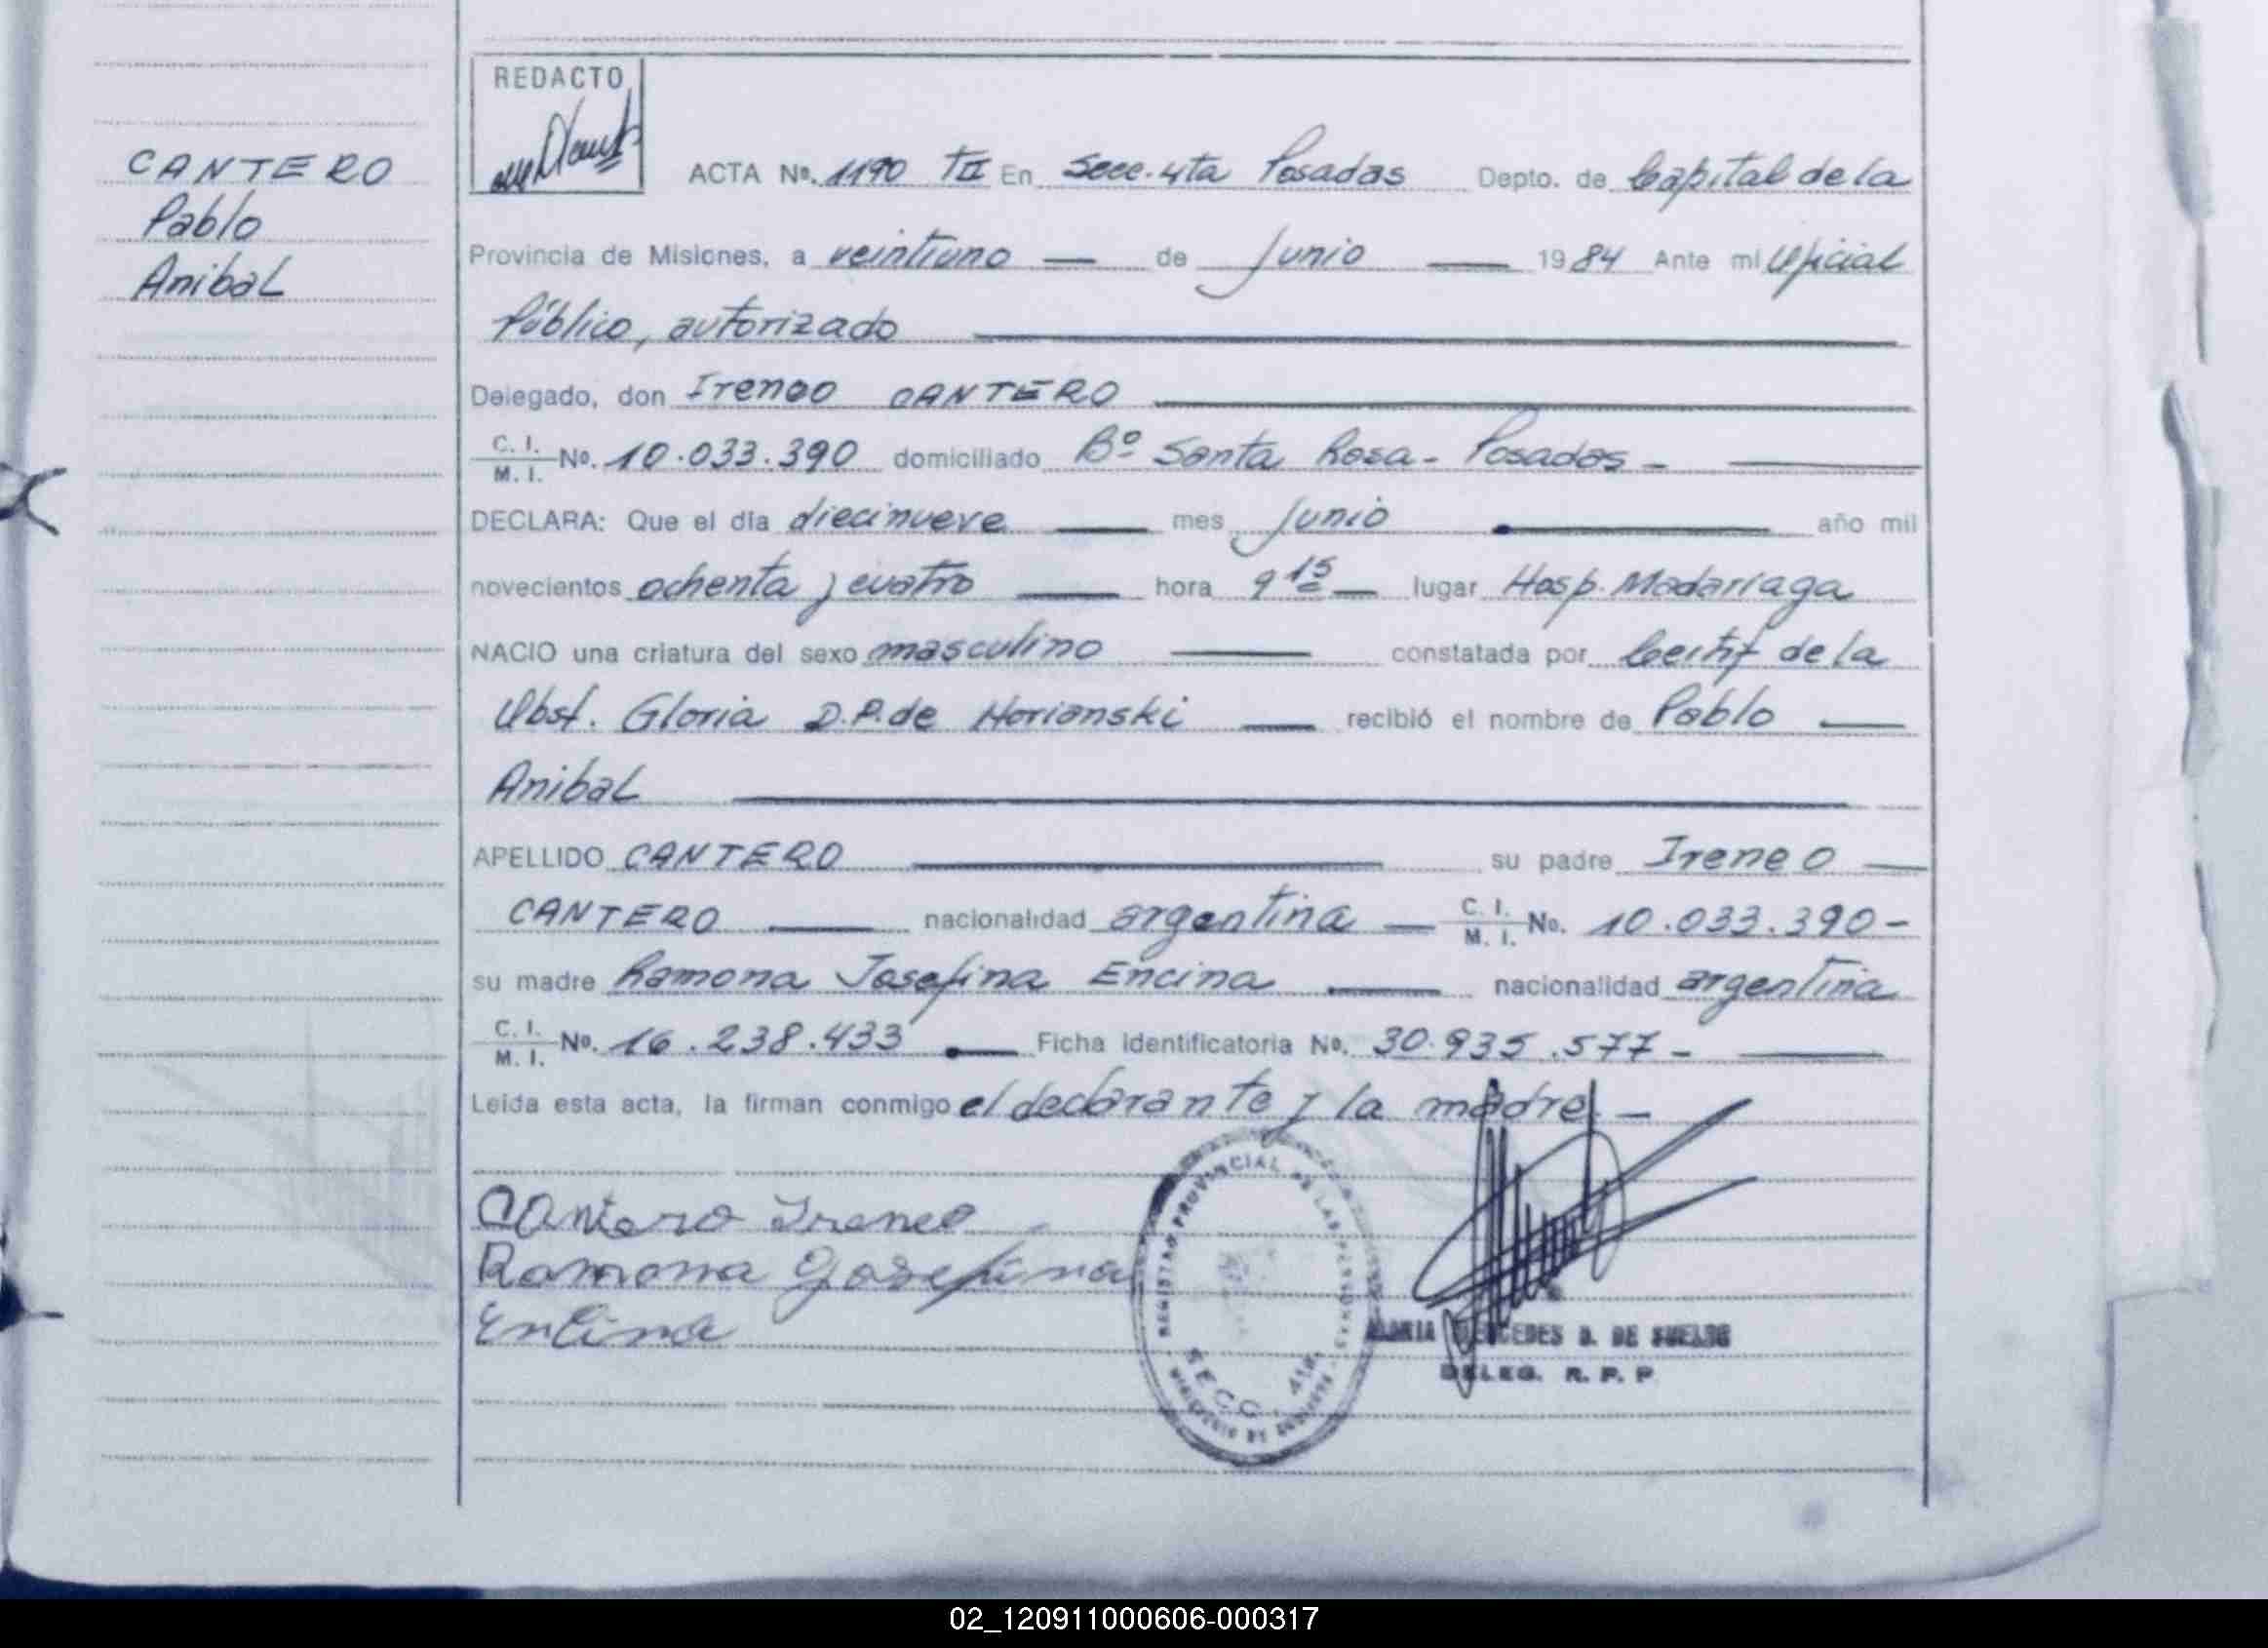 CANTERO
Pablo
Anibal
REDACTO
ACTA No. 1190 TII En Secc. 4ta Posadas Depto. de Capital de la
Provincia de Misiones, a veintiuno — de Junio — 1984 Ante mi Oficial
Público, autorizado —
Delegado, don Ireneo CANTERO —
C. I.
M. I. No. 10.033.390 domiciliado Bº Santa Rosa - Posadas - —
DECLARA: Que el día diecinueve — mes Junio — año mil
novecientos ochenta y cuatro — hora 9 15 — lugar Hosp. Madariaga
NACIO una criatura del sexo masculino — constatada por Certif de la
Obst. Gloria D.P. de Horianski — recibió el nombre de Pablo —
Anibal —
APELLIDO CANTERO — su padre Ireneo —
CANTERO — nacionalidad argentina — C. I.
M. I. No. 10.033.390 -
su madre Ramona Josefina Encina — nacionalidad argentina
C. I.
M. I. No. 16.238.433 — Ficha Identificatoria No. 30.935.577 - —
Leída esta acta, la firman conmigo el declarante y la madre. —
Cantero Ireneo
Ramona Josefina
Encina
REGISTRO PROVINCIAL DE LAS PERSONAS
SECC. 4ta.
MARIA MERCEDES D. DE
DELEG. R. P. P
02_120911000606-000317